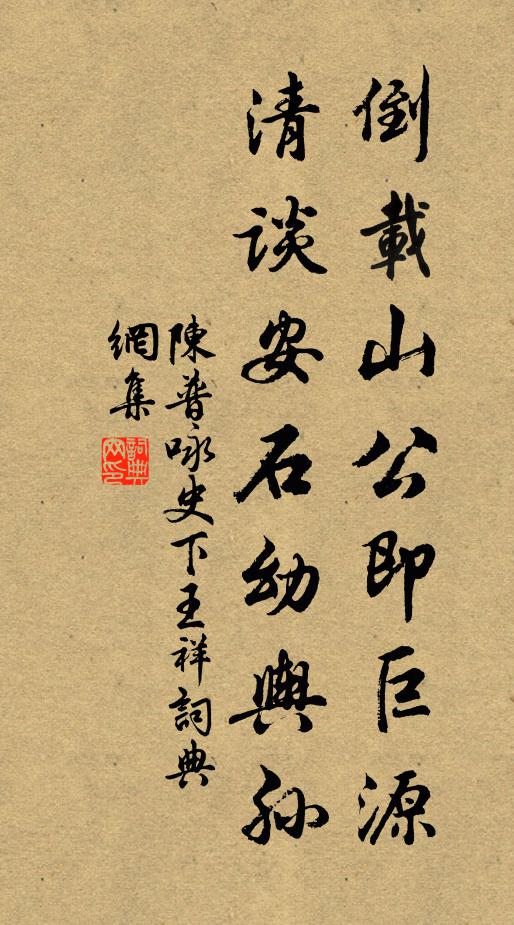 倒載山公即巨源
清談安石幼輿孫
陳普咏史下王祥詞典
網集
詞典
网印